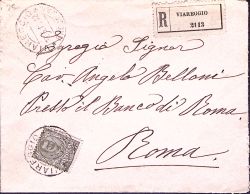 R
VIAREGGIO
2113
Egregio Signor
Cav. Angelo Belloni
Presso il Banco di Roma.
Roma.